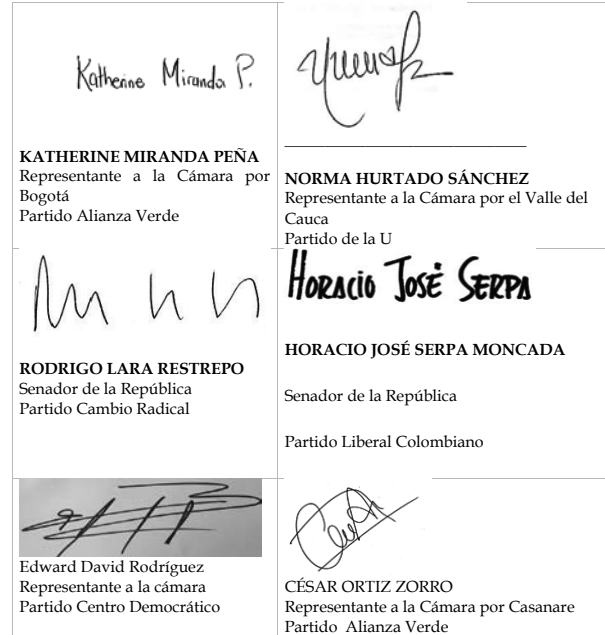 Katherine Miranda P.
KATHERINE MIRANDA PEÑA
Representante a la Cámara por
Bogotá
Partido Alianza Verde
NORMA HURTADO SÁNCHEZ
Representante a la Cámara por el Valle del
Cauca
Partido de la U
RODRIGO LARA RESTREPO
Senador de la República
Partido Cambio Radical
HORACIO JOSÉ SERPA
HORACIO JOSÉ SERPA MONCADA
Senador de la República
Partido Liberal Colombiano
Edward David Rodríguez
Representante a la cámara
Partido Centro Democrático
CÉSAR ORTIZ ZORRO
Representante a la Cámara por Casanare
Partido Alianza Verde